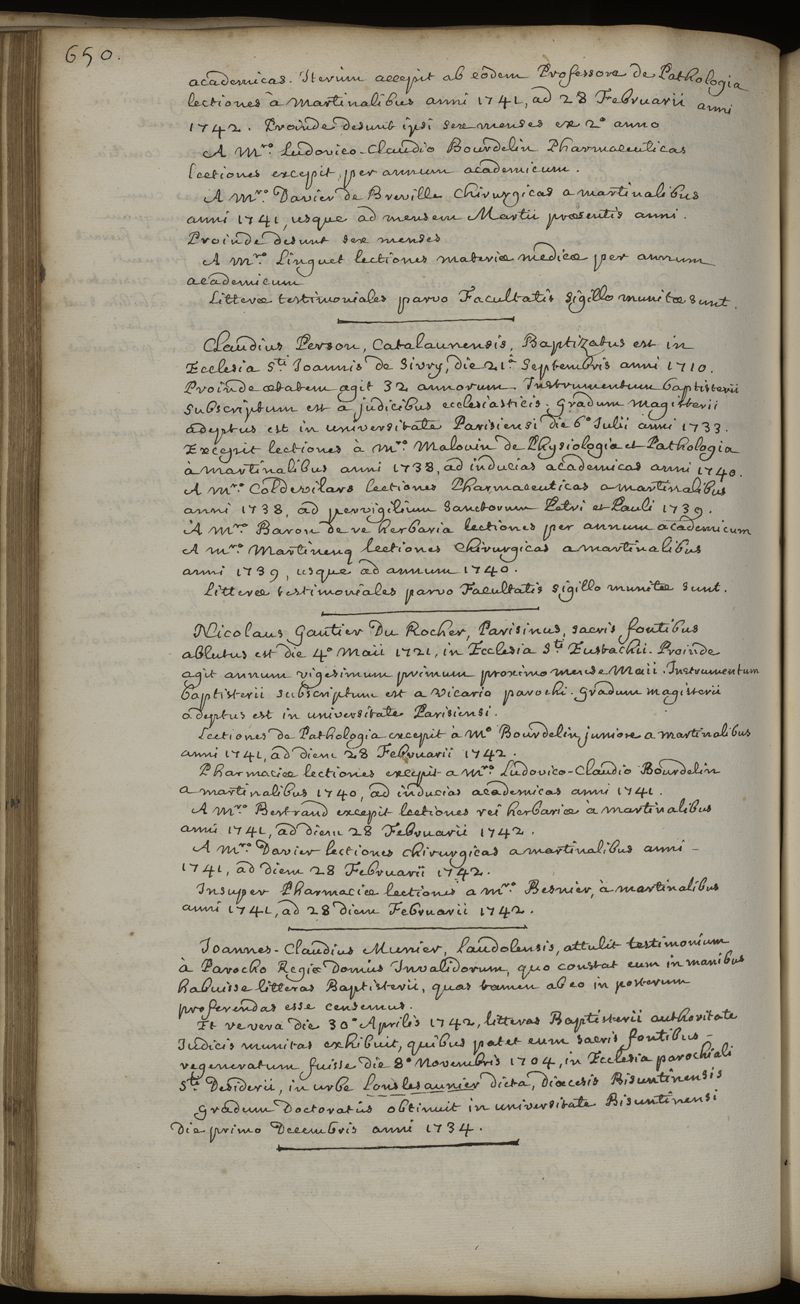 650.
academicas. Iterum accepit ab eodem Professore de Pathologia
lectiones à martinalibus anni 1741, ad 28 Februarii anni
1742. Proinde desunt ipsi sex menses ex 2º anno
A Mro. Ludovico-Claudio Bourdelin Pharmaceuticas
lectiones excepit, per annum academicum.
A Mro. Davier de Breville Chirurgicas a martinalibus
anni 1741, usque ad mensem Martii præsentis anni.
Proinde desunt sex menses
A Mro. Linguet lectiones materiæ medicæ per annum
academicum
Litteræ testimoniales parvo Facultatis sigillo munitæ sunt.
Claudius Person, Catalaunensis, Baptizatus est in
Ecclesia Sti Joannis de Sivry, die 21a Septembris anni 1710.
Proinde ætatem agit 32 annorum. Instrumentum baptisterii
subscriptum est a judicibus ecclesiasticis. Gradum magisterii
adeptus est in universitate Parisiensi die 6º Julii anni 1733.
Excepit lectiones à Mro. Malouin de Physiologia et Pathologia
à martinalibus anni 1738, ad inducias academicas anni 1740.
A Mro. Coldevilars lectiones Pharmaceuticas a martinalibus
anni 1738, ad pervigilium Sanctorum Petri et Pauli 1739.
A Mro. Baron de re herbaria lectiones per annum academicum
A Mro. Martinenq lectiones Chirurgicas a martinalibus
anni 1739, usque ad annum 1740.
Litteræ testimoniales parvo Facultatis sigillo munitæ sunt.
Nicolaus Gautier Du Rocher, Parisinus, sacris fontibus
ablutus est die 4º Maii 1721, in Ecclesia Sti Eustachii. Proinde
agit annum vigesimum primum proximo mense Maii. Instrumentum
baptisterii subscriptum est a vicario parochi. Gradum magisterii
adeptus est in universitate Parisiensi.
Lectiones de Pathologia excepit à Mº Bourdelin juniore a martinalibus
anni 1741, ad diem 28 Februarii 1742.
Pharmaciæ lectiones excepit a Mro. Ludovico-Claudio Bourdelin
a martinalibus 1740, ad inducias academicas anni 1741.
A Mro. Bertrand excepit lectiones rei herbariæ à martinalibus
anni 1741, ad diem 28 Februarii 1742.
A Mro. Davier lectiones chirurgicas a martinalibus anni -
1741, ad diem 28 Februarii 1742.
Insuper Pharmaciæ lectiones a Mro. Besnier, à martinalibus
anni 1741, ad 28 diem Februarii 1742.
Joannes-Claudius Munier, Laudolensis, attulit testimonium
à Parocho Regiæ Domûs Invalidorum, quo constat eum in manibus
habuisse litteras Baptisterii, quas tamen ab eo in posterum
proferendas esse censemus.
Et revera die 30a Aprilis 1742, litteras Baptisterii authoritate
Judicis munitas exhibuit, quibus patet eum sacris fontibus -
regeneratum fuisse die 8º Novembris 1704, in Ecclesia parochiali
Sti Desiderii, in urbe Lonslesaunier dicta, Diœcesis Bisuntinensis
Gradum Doctoratûs obtinuit in universitate Bisuntinensi
die primo Decembris anni 1734.